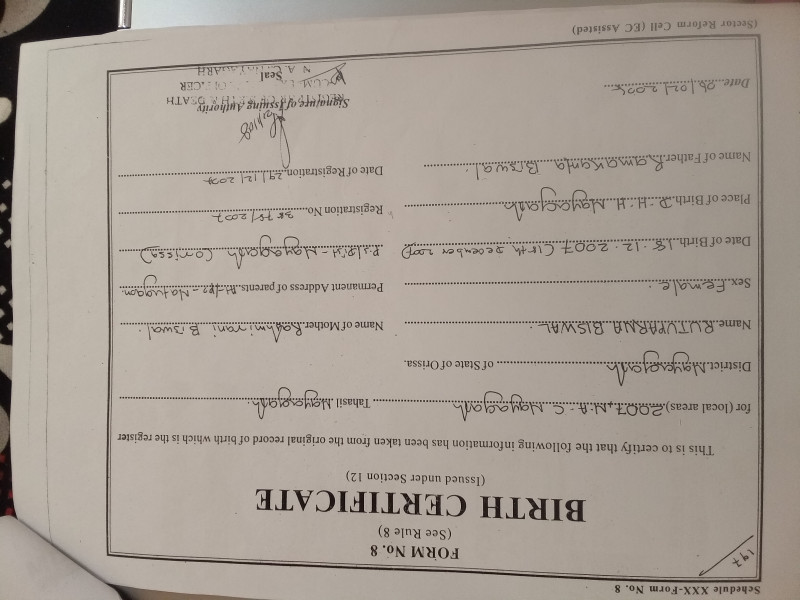 Schedule XXX-Form No. 8
197
FORM No. 8
(See Rule 8)
BIRTH CERTIFICATE
(Issued under Section 12)
This is to certify that the following information has been taken from the original record of birth which is the register
for (local areas) 2007, N.A.C. Nayagarh Tahasil Nayagarh.
District. Nayagarh of State of Orissa.
Name. RUTUPARNA BISWAL. Name of Mother. Rashmirani Biswal.
Sex. Female. Permanent Address of parents. At/po - Natugaon
Date of Birth. 18.12.2007 (December 2007) P.s/Dist - Nayagarh (orissa)
Place of Birth. D.H.H. Nayagarh Registration No.
Name of Father. Ramakanta Biswal. Date of Registration 29/12/2007
Signature of Issuing Authority
Date. Seal
(Sector Reform Cell (EC Assisted)